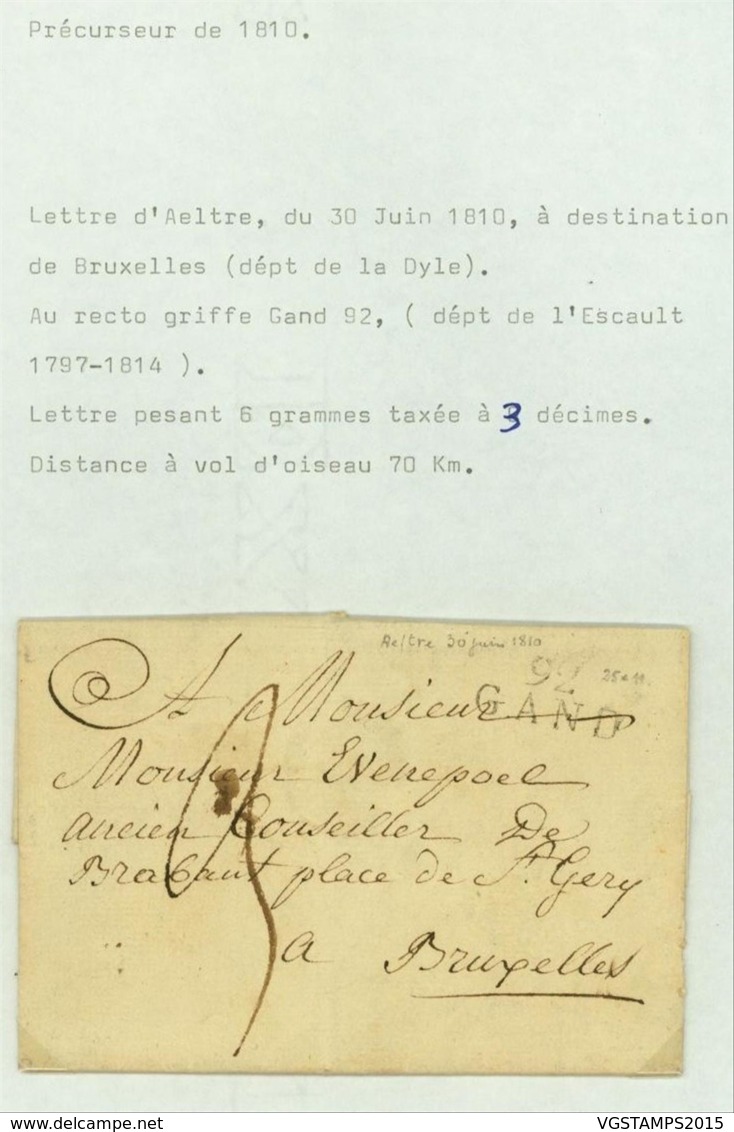 Précurseur de 1810.
Lettre d'Aeltre, du 30 Juin 1810, à destination
de Bruxelles (dépt de la Dyle).
Au recto griffe Gand 92, ( dépt de l'Escault
1797-1814 ).
Lettre pesant 6 grammes taxée à 3 décimes.
Distance à vol d'oiseau 70 Km.
Aeltre 30 juin 1810
92
GAND
A Monsieur
Monsieur Evenepoel
ancien Conseiller De
Brabant place de St. Gery
a Bruxelles
3
delcampe.net
VGSTAMPS2015